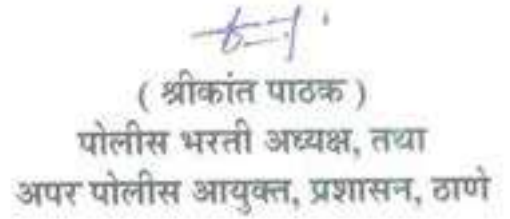 ( श्रीकांत पाठक )
पोलीस भरती अध्यक्ष, तथा
अपर पोलीस आयुक्त, प्रशासन, ठाणे